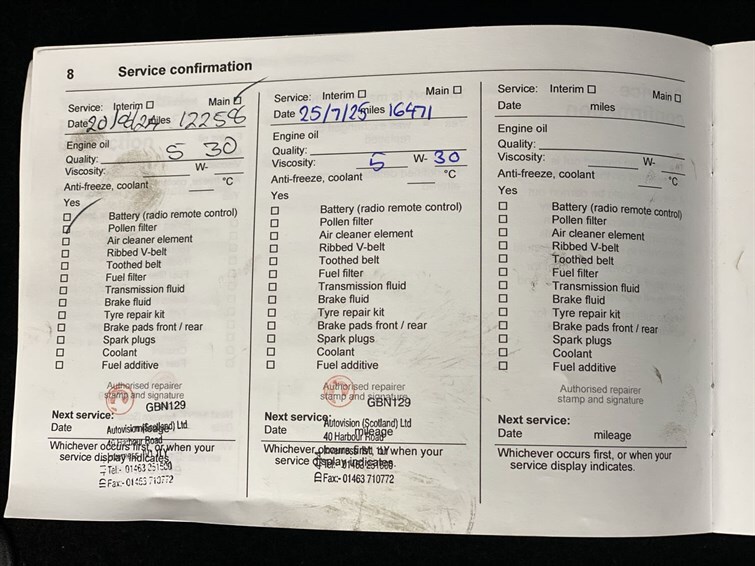 8 Service confirmation
Service: Interim ☐ Main ☑
Date 20/8/24 miles 12258
Engine oil
Quality: 5 30
Viscosity: W-
Anti-freeze, coolant °C
Yes
☐ Battery (radio remote control)
☑ Pollen filter
☐ Air cleaner element
☐ Ribbed V-belt
☐ Toothed belt
☐ Fuel filter
☐ Transmission fluid
☐ Brake fluid
☐ Tyre repair kit
☐ Brake pads front / rear
☐ Spark plugs
☐ Coolant
☐ Fuel additive
Authorised repairer
stamp and signature
GBN129
Next service:
Date mileage
Autovision (Scotland) Ltd.
40 Harbour Road
Whichever occurs first, or when your
service display indicates.
Tel:- 01463
Fax:- 01463 710772
Service: Interim ☐ Main ☐
Date 25/7/25 miles 16471
Engine oil
Quality:
Viscosity: 5 W- 30
Anti-freeze, coolant °C
Yes
☐ Battery (radio remote control)
☐ Pollen filter
☐ Air cleaner element
☐ Ribbed V-belt
☐ Toothed belt
☐ Fuel filter
☐ Transmission fluid
☐ Brake fluid
☐ Tyre repair kit
☐ Brake pads front / rear
☐ Spark plugs
☐ Coolant
☐ Fuel additive
Authorised repairer
stamp and signature
GBN129
Next service:
Date mileage
Autovision (Scotland) Ltd
40 Harbour Road
Whichever occurs first, or when your
service display indicates.
Tel:- 01463
Fax:- 01463 710772
Service: Interim ☐ Main ☐
Date miles
Engine oil
Quality:
Viscosity: W-
Anti-freeze, coolant °C
Yes
☐ Battery (radio remote control)
☐ Pollen filter
☐ Air cleaner element
☐ Ribbed V-belt
☐ Toothed belt
☐ Fuel filter
☐ Transmission fluid
☐ Brake fluid
☐ Tyre repair kit
☐ Brake pads front / rear
☐ Spark plugs
☐ Coolant
☐ Fuel additive
Authorised repairer
stamp and signature
Next service:
Date mileage
Whichever occurs first, or when your
service display indicates.